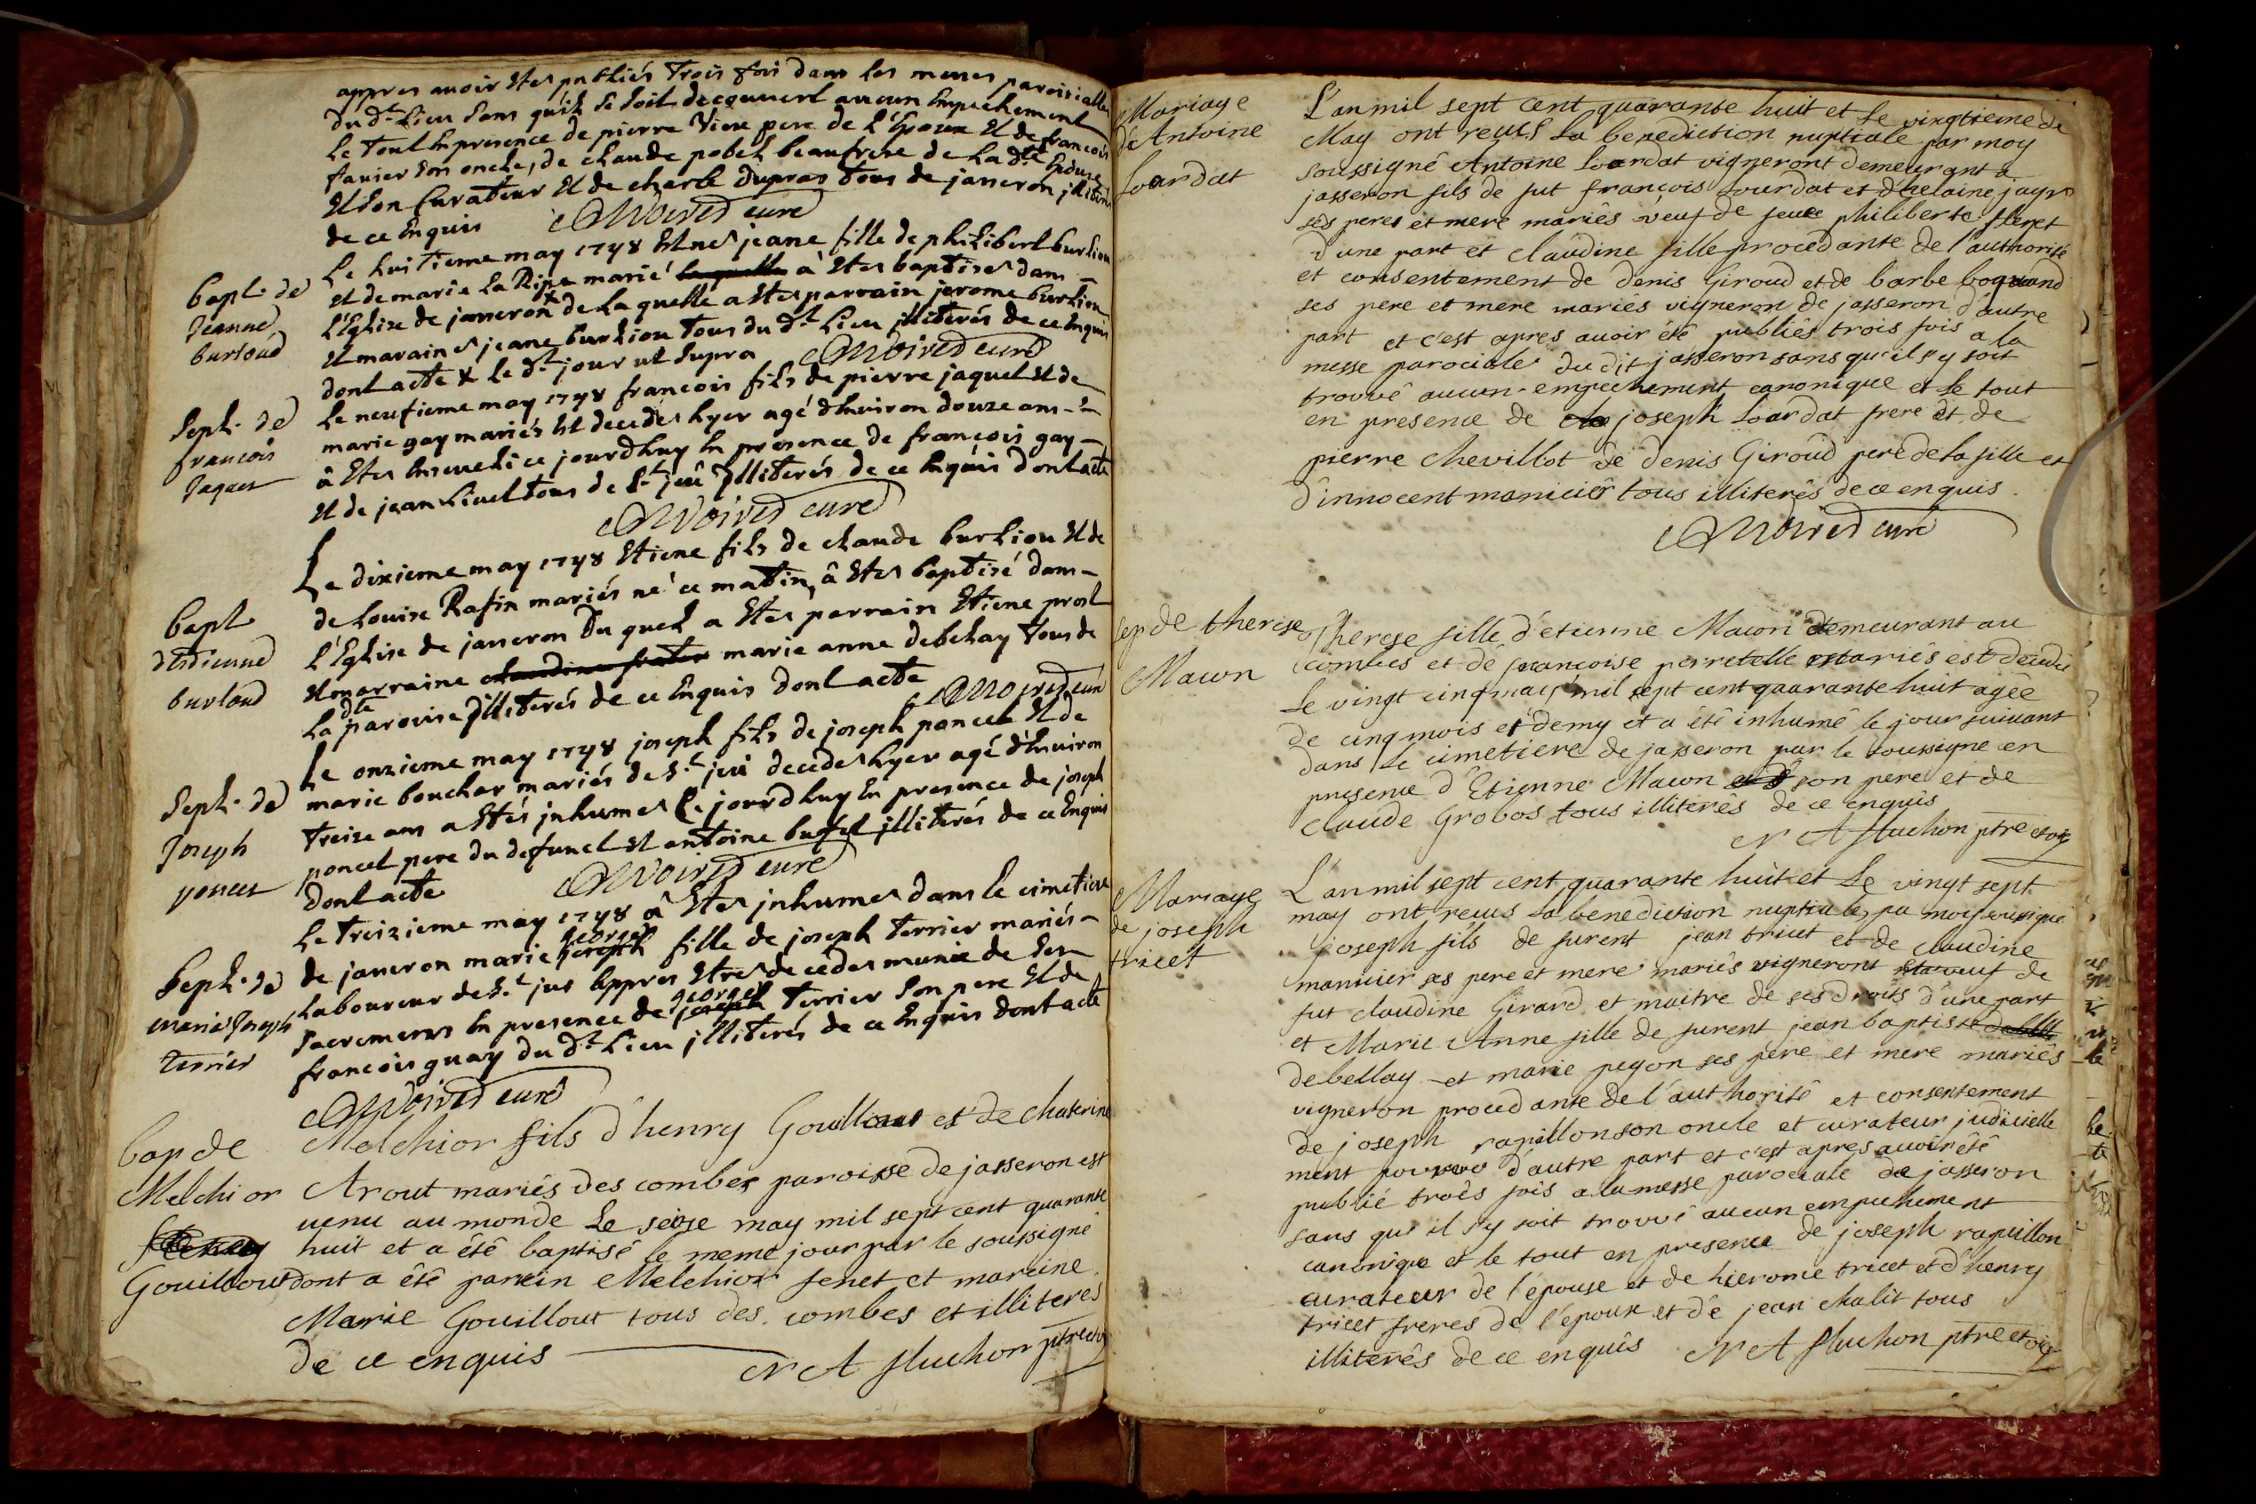 appres auoir Etes publiés Trois fois dans les messes paroisialles
du dt Lieu sans qu'il se soit decouuert aucun Empechement
Le Tout Enpresence de pierre Viene pere de l'Epoux Et de francois
fauier son oncle, de claude pobel beaufrere de la dte Epouse
Et son Curateur Et de charle dupras Tous de jasseron jlliterés
de ce Enquis curé
Bapt. de
Jeanne
burloud
Le huitieme may 1748 Est nee jeane fille de philibert burliou
Et de marie La Ripe marié laquelle à Etes baptisée dans
L'Eglise de jasseron de Laquelle a Etes parrain jerome burliou
Et maraine jeane burliou Tous du dt Lieu jlliterés de ce Enquis
dont acte & Le dt jour ut supra curé
Sepl. de
francois
Jaquet
Le neufieme may 1748 francois fils de pierre jaquet Et de
marie gay mariés Est decedes hyer agé d'Enuiron douze ans
à Etes Enseueli ce jourdhuy En presence de francois gay
Et de jean Liuel Tous de St jeu jlliterés de ce Enquis dont acte
curé
bapt
d'Estienne
burloud
Le dixieme may 1748 Etiene fils de claude burliou Et de
de Louise Rafin mariés né ce matin, à Etes baptisé dans
L'Eglise de jasseron Du quel a Etes parrain Etiene prost
Et marraine claudine frater marie anne debelay Tous de
La dte paroisse jlliterés de ce Enquis dont acte curé
Sepl. de
Joseph
poncet
Le onzieme may 1748 joseph fils de joseph poncet Et de
marie bouchar mariés de St jeu decedes hyer agé d'Enuiron
Treize ans a Etés jnhumes Ce jourdhuy En presence de joseph
poncet pere du defunct Et antoine bufet jlliterés de ce Enquis
dont acte curé
Sepl. de
marie Joseph
Terrier
Le Treizieme may 1748 à Etes jnhumes dans le cimetiere
de jasseron marie joseph george fille de joseph Terrier mariés
Laboureur de St jus Appres Etres decedes munie de ses
sacremens En presence de joseph george Terrier son pere Et de
francois guay du dt Lieu jlliterés de ce Enquis dont acte
curé
bap de
Melchior
Gouillout
Melchior fils d'henry Gouillout et de chaterine
Arout mariés des combes paroisse de jasseron est
uenu au monde Le seize may mil sept cent quarante
huit et a été baptisé le meme jour par le soussigné
dont a été parein Melchior fenet et mareine
Marie Gouillout tous des combes et illiterés
de ce enquis N A fluchon ptre et vic
Mariage
de Antoine
Loardat
L'an mil sept cent quarante huit et Le vingtieme de
May ont reçus La benediction nuptiale par moy
soussigné Antoine Loardat vigneront demeurant a
jasseron fils de fut françois Lourdat et d'helaine jayr
ses peres et mere mariés veuf de feue philiberte fleret
d'une part et claudine fille procedante de l'authorité
et consentement de denis Giroud et de barbe boquand
ses pere et mere mariés vigneron de jasseron d'autre
part et c'est apres auoir été publiés trois fois a la
messe parociale du dit jasseron sans qu'il s'y soit
trouvé aucun empechement canonique et le tout
en presence de joseph Loardat frere et de
pierre chevillot de denis Giroud pere de La fille et
d'innocent manicier tous illiterés de ce enquis.
curé
sep de therese
Macon
Therese fille d'etienne Macon demeurant au
combes et de françoise perretelle mariés est decedée
Le vingt cinq may mil sept cent quarante huit agée
de cinq mois et demy et a été inhumé le jour suiuant
dans le cimetiere de jasseron par le soussigné en
presence d'Etienne Macon son pere et de
claude Grobos tous illiterés de ce enquis
N A fluchon ptre et vic
Mariage
de joseph
tricet
L'an mil sept cent quarante huit et Le vingt sept
may ont reçus La benediction nuptiale par moy soussigné
joseph fils de furent jean tricet et de claudine
manicier ses pere et mere mariés vigneront veuf de
fut claudine Girard et maitre de ses droits d'une part
et Marie Anne fille de furent jean baptiste
debellay et marie pegon ses pere et mere mariés
vigneron procedante de l'authorité et consentement
de joseph rapillon son oncle et curateur judicielle
ment pourvu d'autre part et c'est apres auoir été
publié trois fois a la messe parociale de jasseron
sans qu'il s'y soit trouvé aucun empechement
canonique et le tout en presence de joseph rapillon
curateur de l'épouse et de hierome tricet et d'henry
tricet freres de l'epoux et de jean chalit tous
illiterés de ce enquis N A fluchon ptre et vic